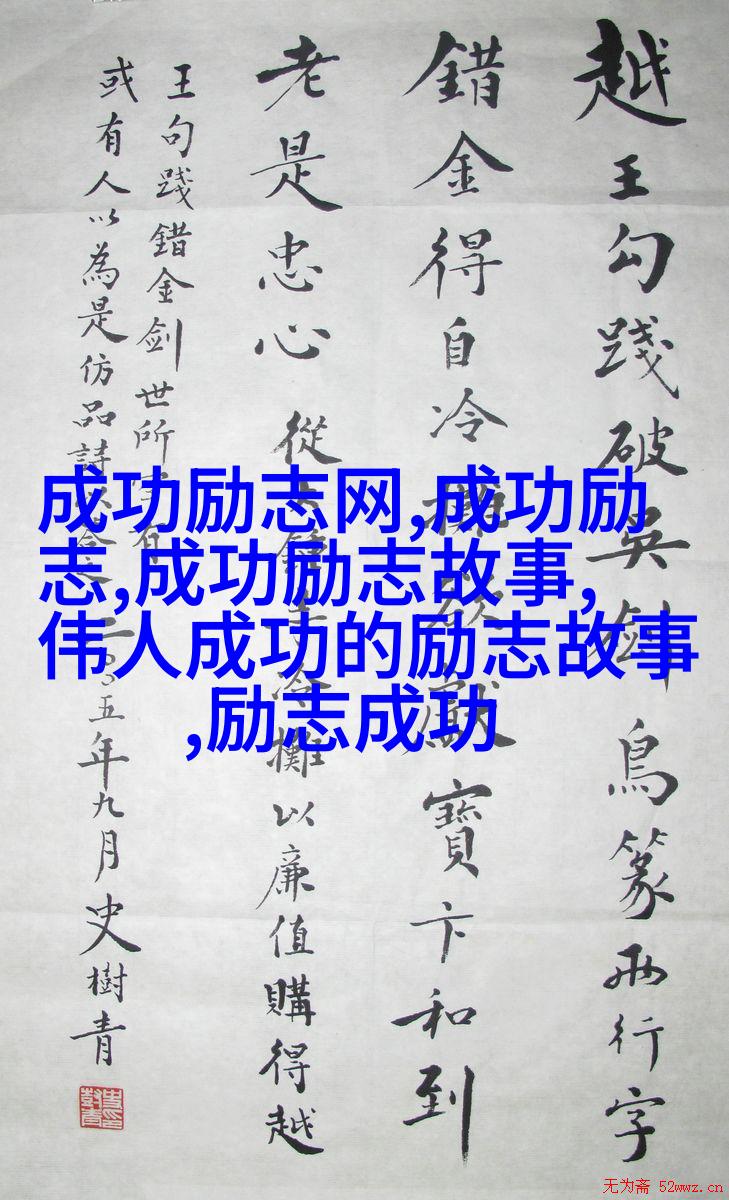 越王勾踐破吳劍鳥篆兩行字
錯金得自冷攤欣獻寶卞和到
老是忠心 從大鐘寺冷攤以廉值購得越
王句踐錯金劍世所
或有人以為是仿品詩以 二〇〇五年九月史樹青
成功励志网,成功励
志,成功励志故事,
伟人成功的励志故事
,励志成功
无为斋 52wwz.cn